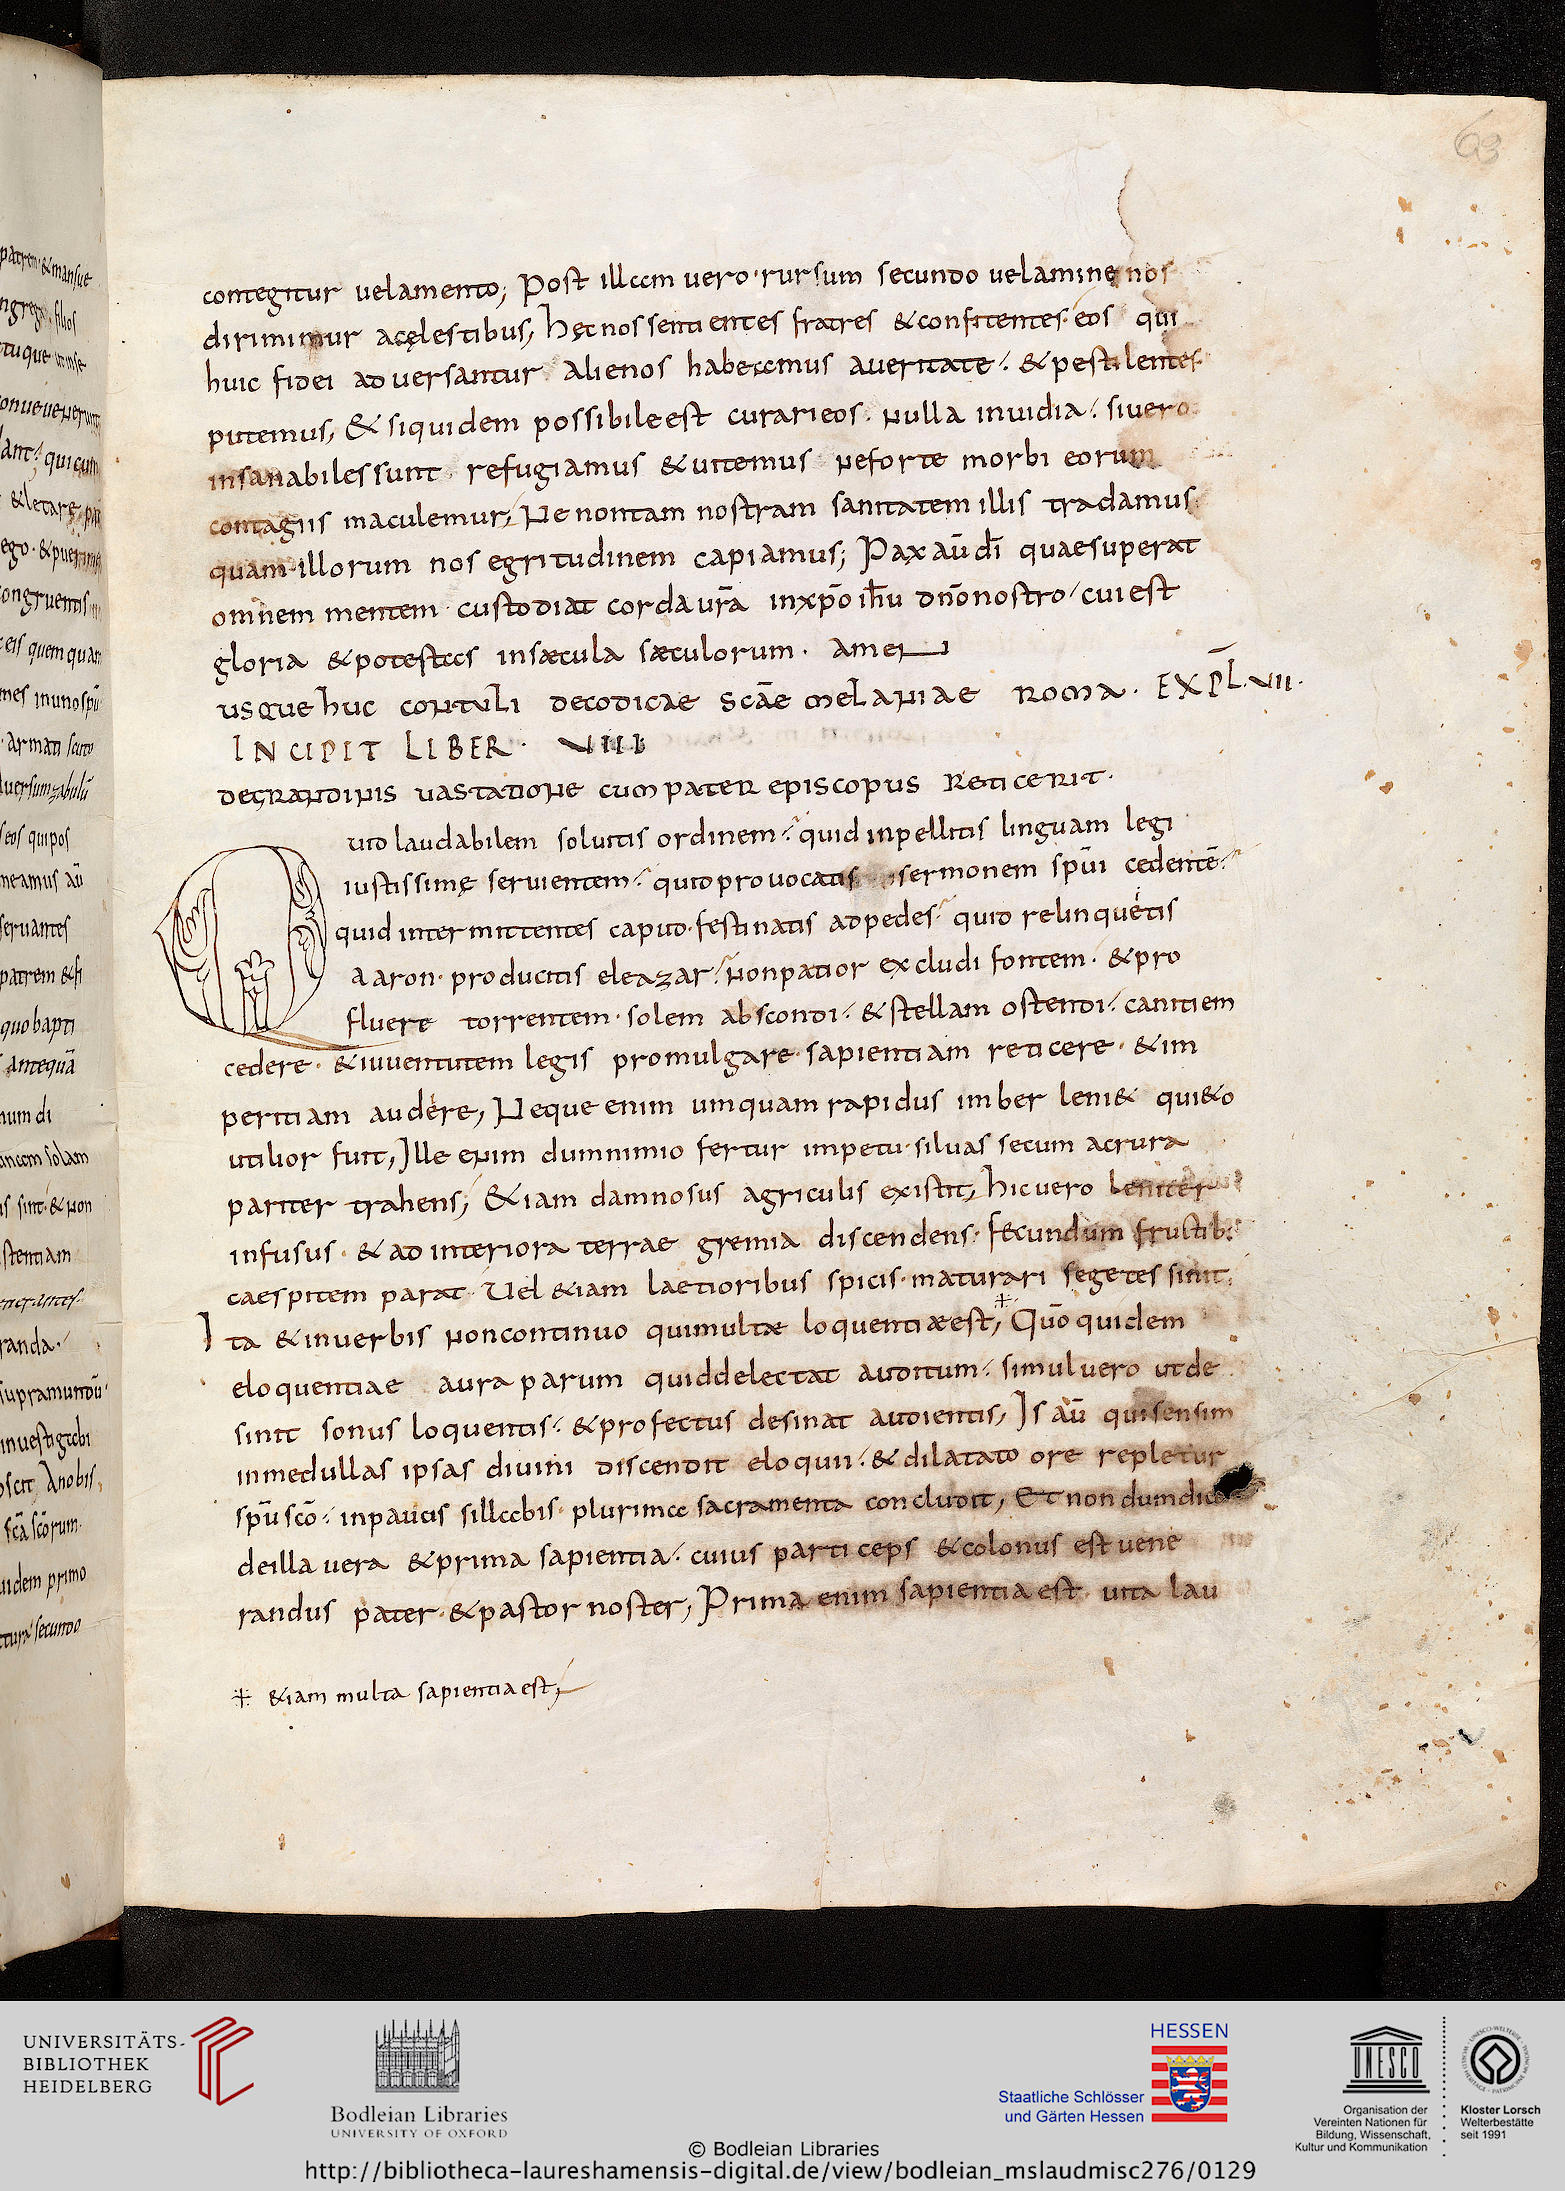 63
contegitur velamento; Post illam vero rursum secundo velamine nos
dirimimur a cęlestibus, hęc nos sentientes fratres & confitentes eos qui
huic fidei adversantur alienos habeamus a veritate. & pestilentes
putemus, & siquidem possibile est curari eos. nulla invidia. si vero
insanabiles sunt refugiamus & vitemus ne forte morbi eorum
contagiis maculemur, Ne non tam nostram sanitatem illis tradamus
quam illorum nos egritudinem capiamus; Pax aū dī quae superat
omnem mentem custodiat corda vrā in xpō ihū dnō nostro cui est
gloria & potestas in sæcula sæculorum. amen
usque huc contuli de codicae scāe melaniae roma. EXPL. VII.
INCIPIT LIBER. VIII
de grandinis vastatione cum pater episcopus reticerit.
Quid laudabilem solvitis ordinem. quid inpellitis linguam legi
iustissimę servientem. quid provocatis sermonem spūi cedentē.
quid intermittentes caput. festinatis ad pedes. quid relinquetis
aaron. producitis eleazar. non patior excludi fontem. & pro
fluere torrentem. solem abscondi. & stellam ostendi. canitiem
cedere. & iuventutem legis promulgare. sapientiam reticere. & im
peritiam audere, Neque enim umquam rapidus imber leni & qui&o
utilior fuit, Ille enim dum nimio fertur impetu. silvas secum ac rura
pariter trahens, &iam damnosus agriculis existit, hic vero leniter
infusus. & ad interiora terrae gremia discendens. fecundum fructib:
caespitem parat. Vel &iam laetioribus spicis. maturari segetes sinit.
Ita & in verbis non continuo qui multæ loquentiæ est, Quō quidem
eloquentiae aura parum quid delectat auditum. simul vero ut de
sinit sonus loquentis. & profectus desinat audientis, Is aū qui sensim
in medullas ipsas divini discendit eloquii. & dilatato ore repletur
spū scō. in paucis sillabis. plurima sacramenta concludit, Et nondum dico
de illa vera & prima sapientia. cuius particeps & colonus est vene
randus pater. & pastor noster, Prima enim sapientia est vita lau
&iam multa sapientia est,
UNIVERSITÄTS-
BIBLIOTHEK
HEIDELBERG
Bodleian Libraries
UNIVERSITY OF OXFORD
HESSEN
Staatliche Schlösser
und Gärten Hessen
UNESCO
Organisation der
Vereinten Nationen für
Bildung, Wissenschaft,
Kultur und Kommunikation
Kloster Lorsch
Welterbestätte
seit 1991
© Bodleian Libraries
http://bibliotheca-laureshamensis-digital.de/view/bodleian_mslaudmisc276/0129